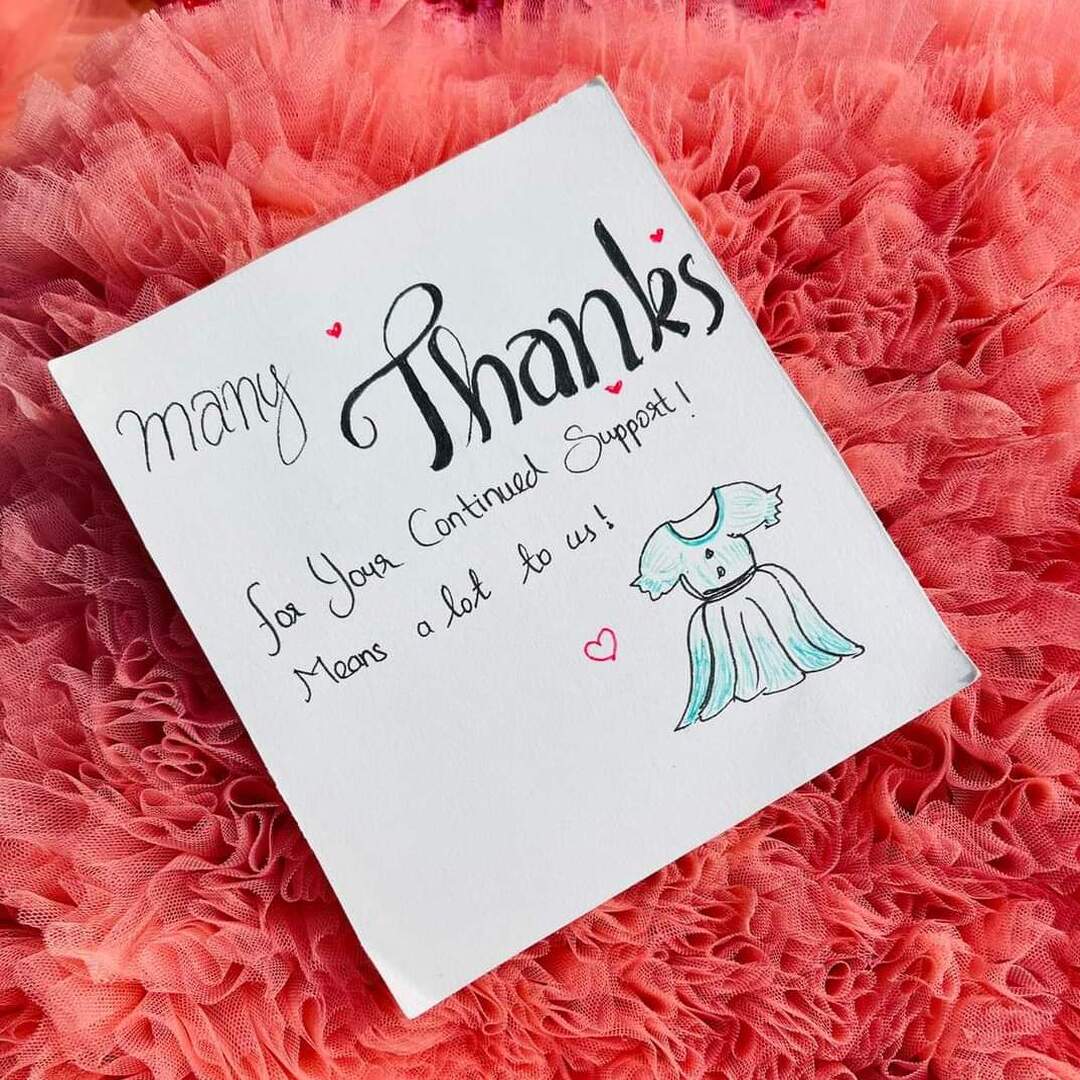 many Thanks
for Your Continued Support!
Means a lot to us!